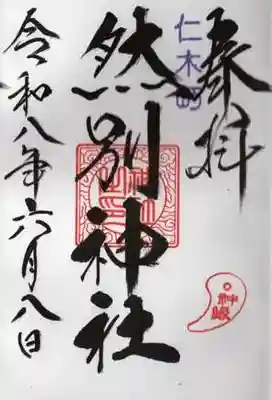 奉拝
仁木町
然別神社
令和八年六月八日